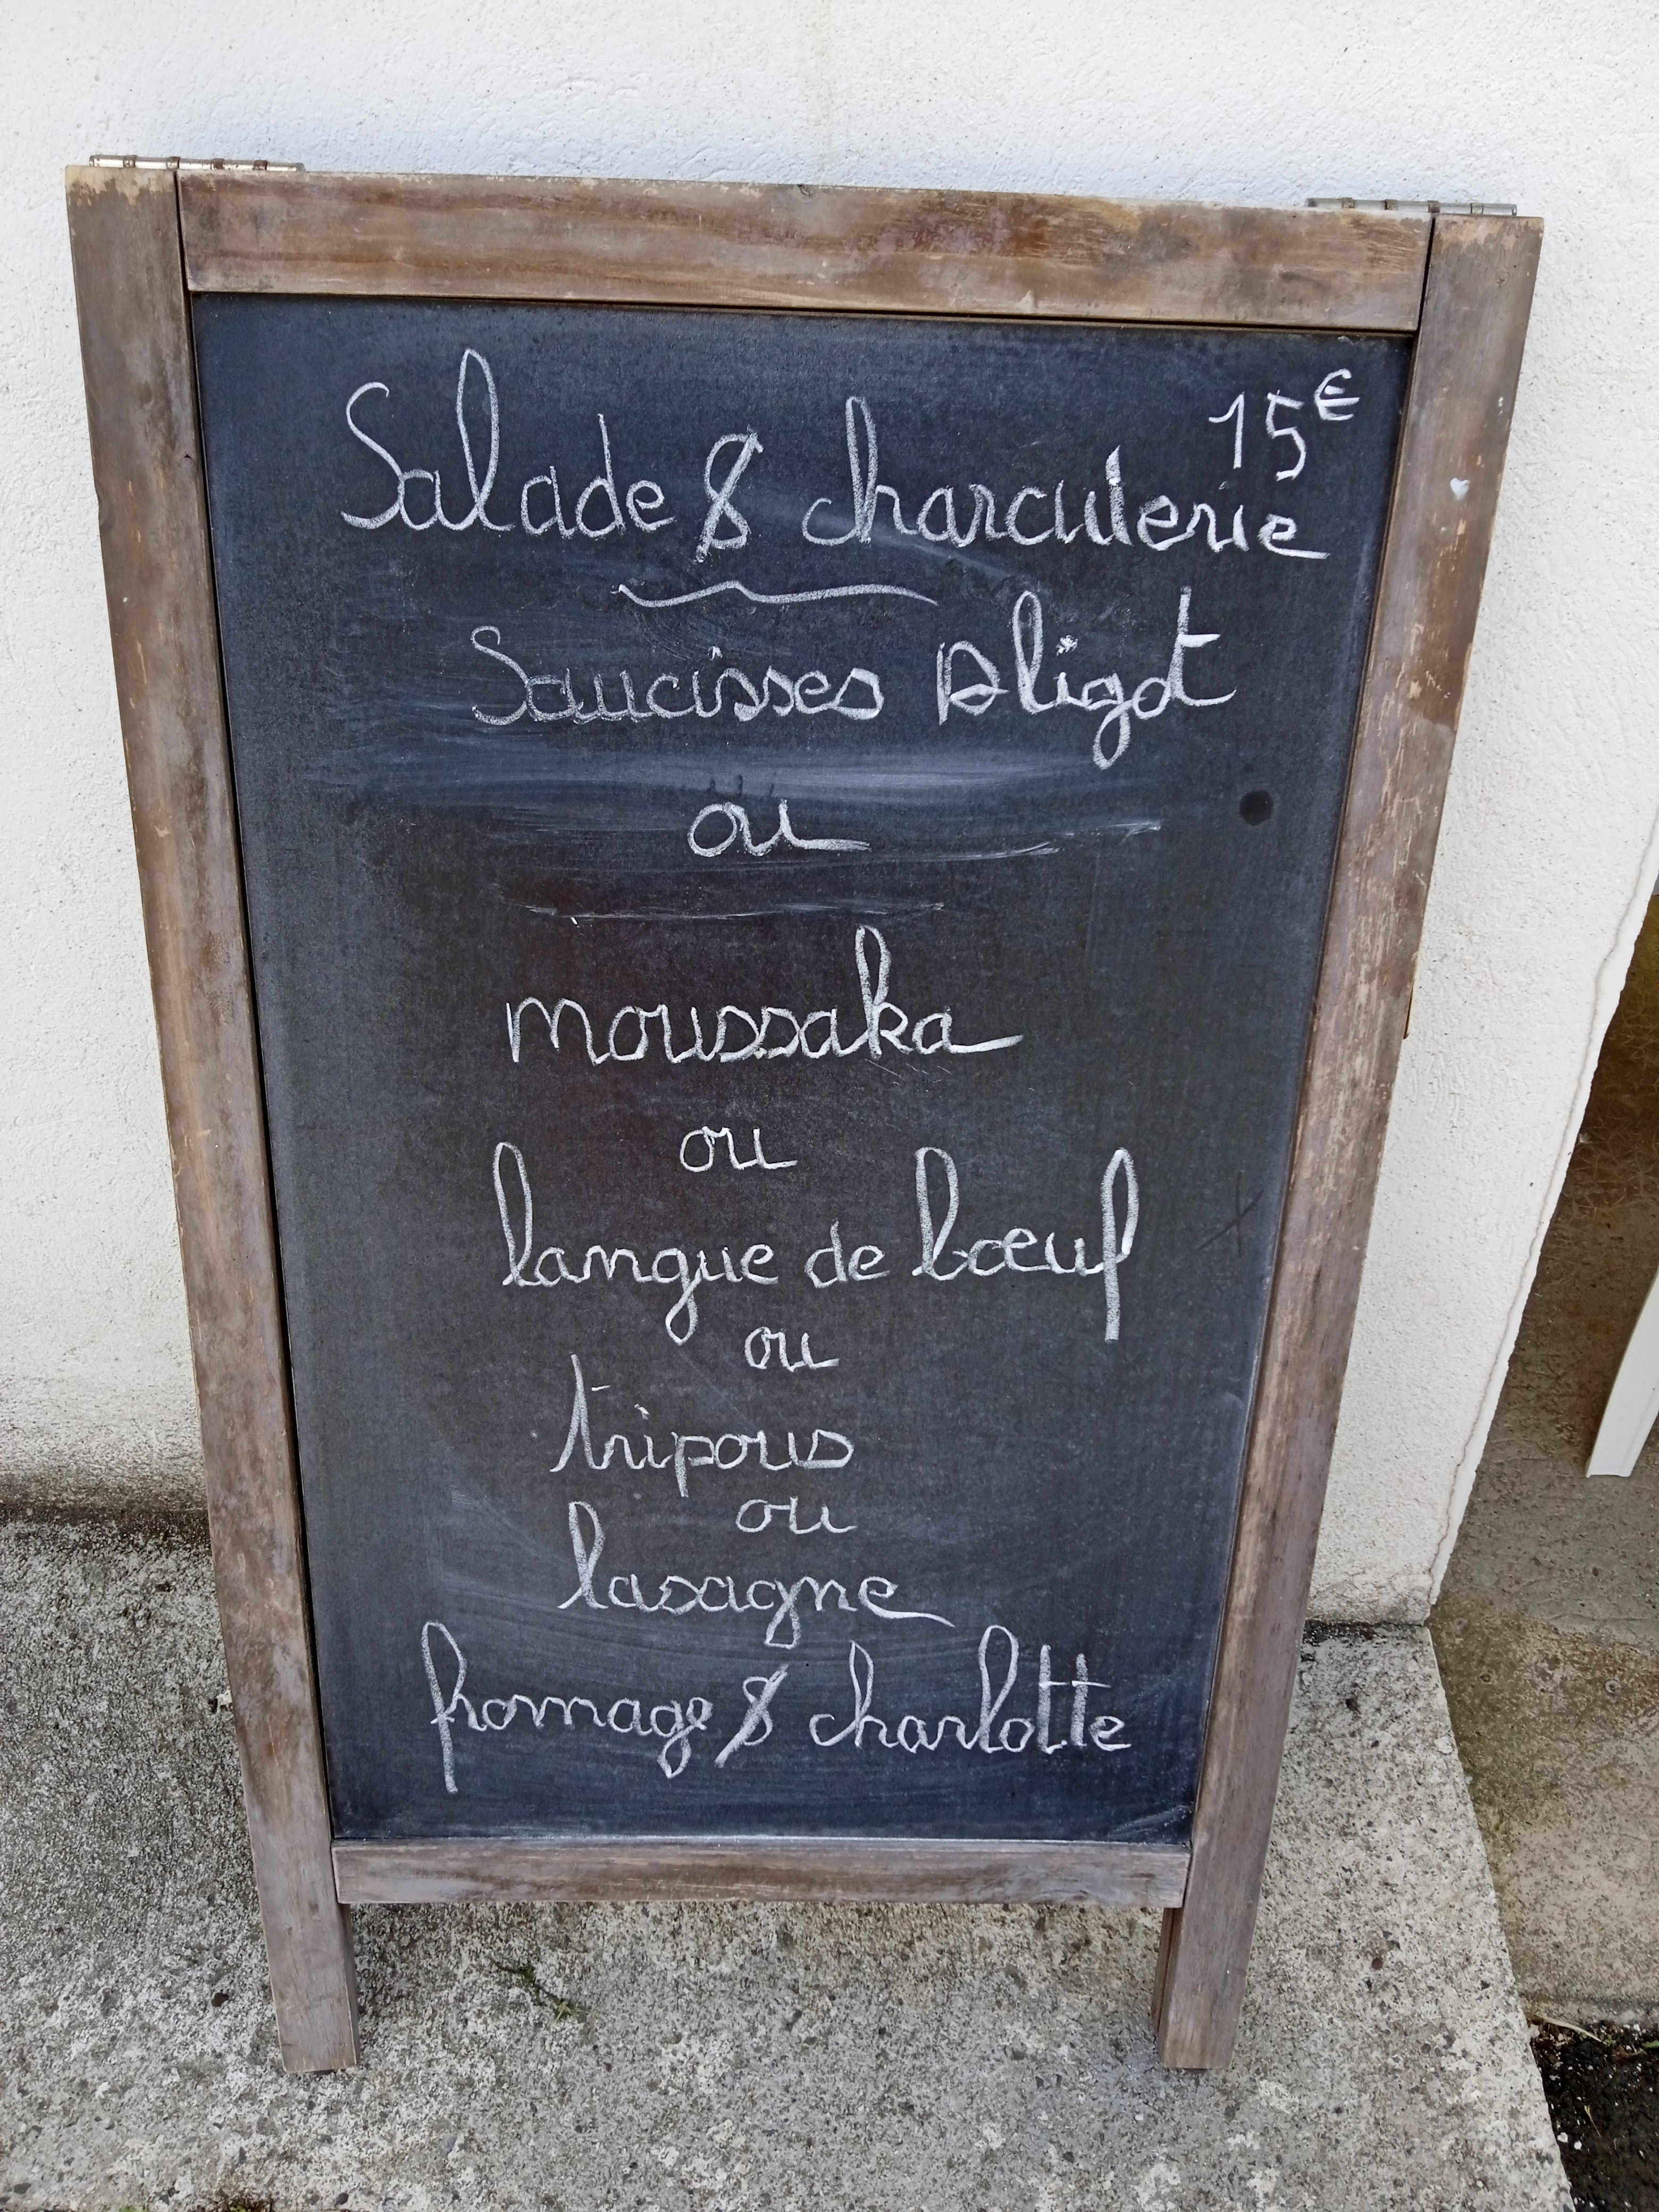 15€
Salade & charcuterie
Saucisses Aligot
ou
moussaka
ou
langue de bœuf
ou
tripous
ou
lasagne
fromage & charlotte